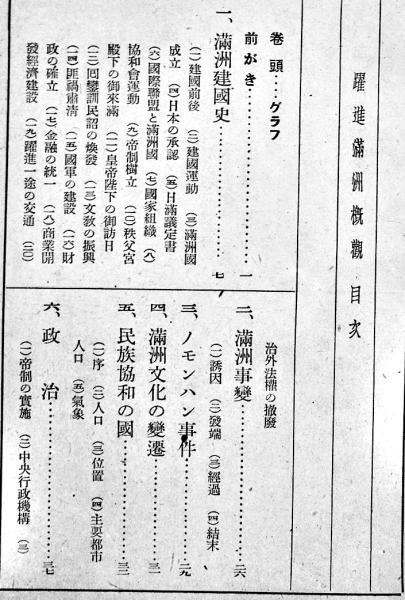 躍進滿洲概觀目次
卷頭…グラフ
前がき…………………一
一、滿洲建國史…………七
(一)建國前後 (二)建國運動 (三)滿洲國
成立 (四)日本の承認 (五)日滿議定書
(六)國際聯盟と滿洲國 (七)國家組織 (八)
協和會運動 (九)帝制樹立 (一〇)秩父宮
殿下の御來滿 (一一)皇帝陛下の御訪日
(一二)回鑾訓民詔の煥發 (一三)文敎の振興
(一四)匪禍肅淸 (一五)國軍の建設 (一六)財
政の確立 (一七)金融の統一 (一八)商業開
發經濟建設 (一九)躍進一途の交通 (二〇)
治外法權の撤廢
二、滿洲事變…………二六
(一)誘因 (二)發端 (三)經過 (四)結末
三、ノモンハン事件…………二九
四、滿洲文化の變遷…………三一
五、民族協和の國…………三二
(一)序 (二)人口 (三)位置 (四)主要都市
人口 (五)氣象
六、政治…………三七
(一)帝制の實施 (二)中央行政機構 (三)